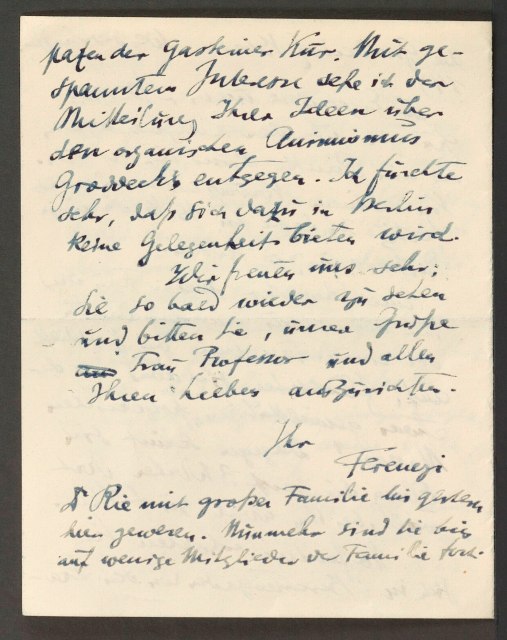 der Gasteiner Kur. Mit ge-
spanntem Interesse sehe ich der
Mitteilung Ihrer Ideen über
den organischen Animismus
Groddeck's entgegen. Ich fürchte
sehr, daß sich dazu in Berlin
keine Gelegenheit bieten wird.
Wir freuen uns sehr,
Sie so bald wieder zu sehen
und bitten Sie, unsere Grüße
Frau Professor und allen
Ihren Lieben auszurichten.
Ihr
Ferenczi
Dr Rie mit großer Familie bis gestern
hier gewesen. Nunmehr sind sie bis
auf wenige Mitglieder der Familie fort.